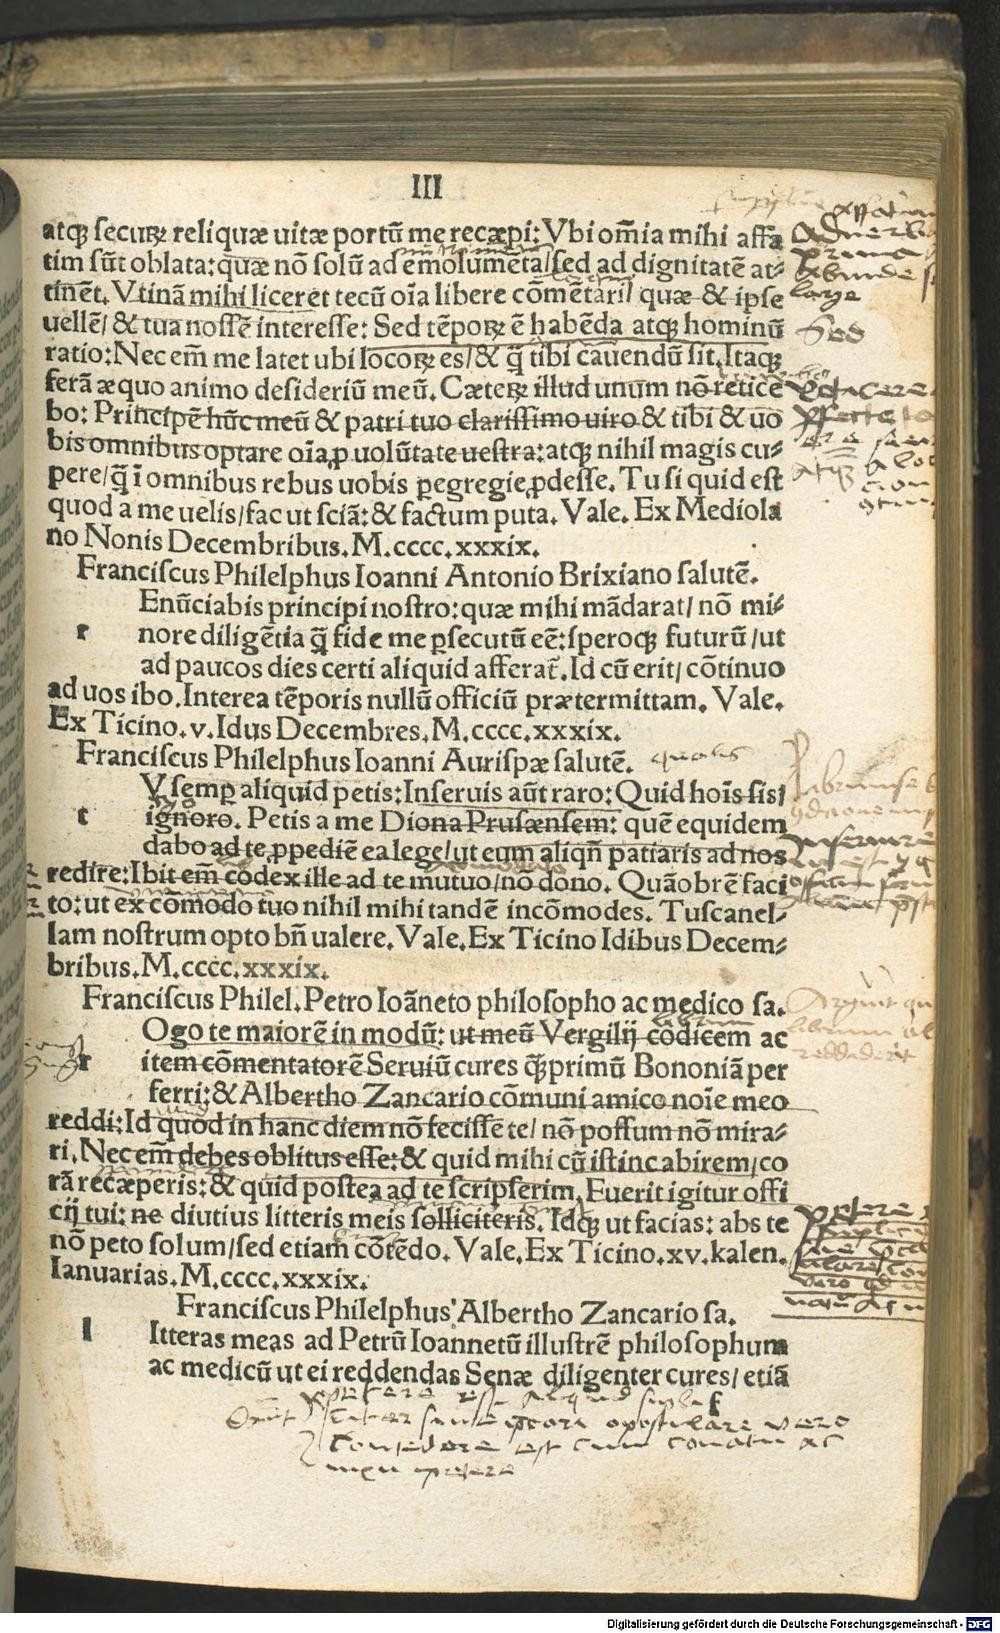 III
atqꝫ securꝝ reliquæ uitæ portū me recæpi: Vbi om̄ia mihi affa
tim sūt oblata: quæ nō solū ad emolumēta/ sed ad dignitatē at⸗
tinēt. Vtinā mihi liceret tecū oīa libere cōmētari/ quæ & ipse
uellē/ & tua nossē interesse: Sed tēporꝝ ē habēda atqꝫ hominū
ratio: Nec em̄ me latet ubi locorꝝ es/ & q̄ tibi cauendū sit. Itaqꝫ
ferā æquo animo desideriū meū. Cæterꝝ illud unum nō retice
bo: Principē hūc meū & patri tuo clarissimo uiro & tibi & uo
bis omnibus optare oīa ꝓ uolūtate uestra: atqꝫ nihil magis cu⸗
pere/ q̄ ī omnibus rebus uobis ꝑegregie ꝓdesse. Tu si quid est
quod a me uelis/ fac ut sciā: & factum puta. Vale. Ex Mediola
no Nonis Decembribus. M.cccc.xxxix.
Franciscus Philelphus Ioanni Antonio Brixiano salutē.
Enūciabis principi nostro: quæ mihi mādarat/ nō mi⸗
r nore diligētia q̄ fide me ꝑsecutū eē: speroqꝫ futurū/ ut
ad paucos dies certi aliquid afferat̄. Id cū erit/ cōtinuo
ad uos ibo. Interea tēporis nullū officiū prætermittam. Vale.
Ex Ticino. v. Idus Decembres. M.cccc.xxxix.
Franciscus Philelphus Ioanni Aurispæ salutē. qualis
V semꝑ aliquid petis: Inseruis aūt raro: Quid hoīs sis/
t ignoro. Petis a me Diona Prusænsem: quē equidem
dabo ad te ꝓpediē ea lege/ ut eum aliqn̄ patiaris ad nos
redire: Ibit em̄ codex ille ad te mutuo/ nō dono. Quāobrē faci
to: ut ex cōmodo tuo nihil mihi tandē incōmodes. Tuscanel⸗
lam nostrum opto bn̄ ualere. Vale. Ex Ticino Idibus Decem⸗
bribus. M.cccc.xxxix.
Franciscus Philel. Petro Ioāneto philosopho ac medico sa.
Ogo te maiorē in modū: ut meū Vergilij codicem ac
r item cōmentatorē Seruiū cures q̄ꝫprimū Bononiā per
ferri: & Albertho Zancario cōmuni amico noīe meo
reddi: Id quod in hanc diem nō fecisse te/ nō possum nō mira⸗
ri. Nec em̄ debes oblitus esse: & quid mihi cū istinc abirem/ co
rā recæperis: & quid postea ad te scripserim. Fuerit igitur offi
cij tui: ne diutius litteris meis solliciteris. Idqꝫ ut facias: abs te
nō peto solum/ sed etiam cōtēdo. Vale. Ex Ticino. xv. kalen.
Ianuarias. M.cccc.xxxix.
Franciscus Philelphus Albertho Zancario sa.
l Itteras meas ad Petrū Ioannetū illustrē philosophum
ac medicū ut ei reddendas Senæ diligenter cures/ etiā
Sed
large
petere
Digitalisierung gefördert durch die Deutsche Forschungsgemeinschaft - DFG